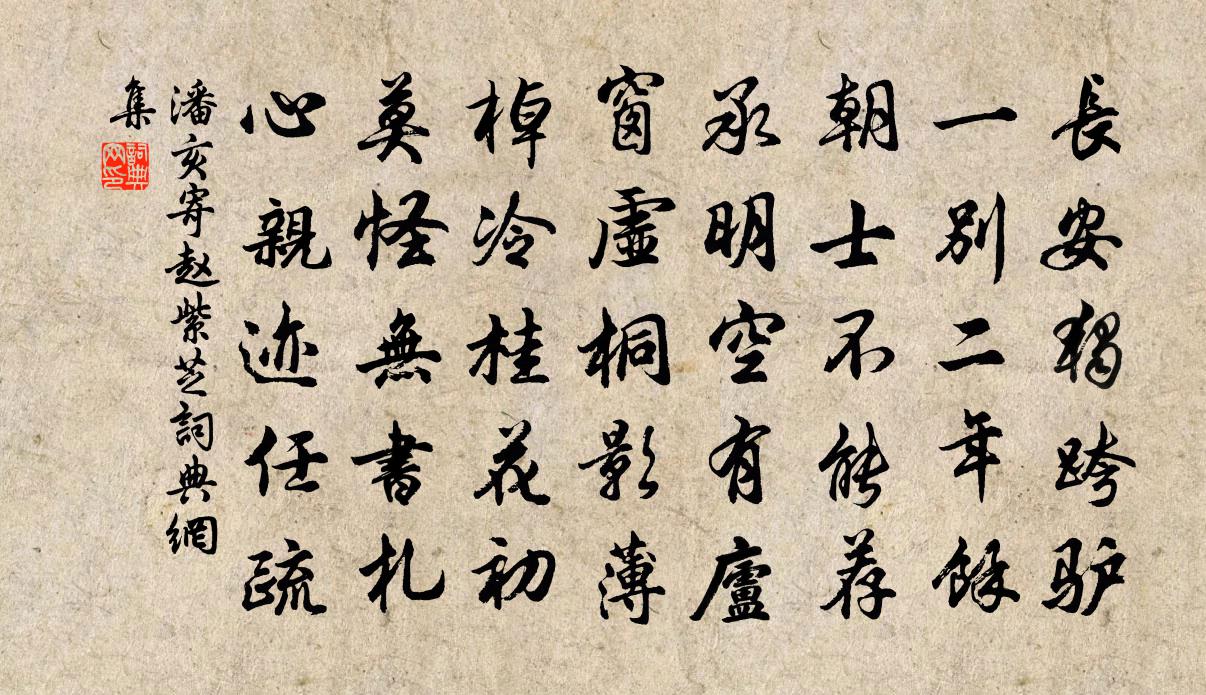 長安獨跨驴
一别二年餘
朝士不能荐
承明空有廬
窗虛桐影薄
棹冷桂花初
莫怪無書札
心親迹任疏
潘亥寄赵紫芝詞典網
集
詞典
网印